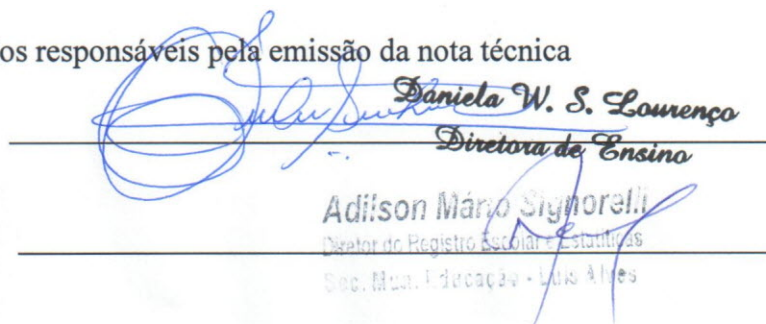 os responsáveis pela emissão da nota técnica
Daniela W. S. Lourenço
Diretora de Ensino
Adilson Mário Signorelli
Diretor do Registro Escolar e Estatíticas
Sec. Mun. Educação - Luis Alves